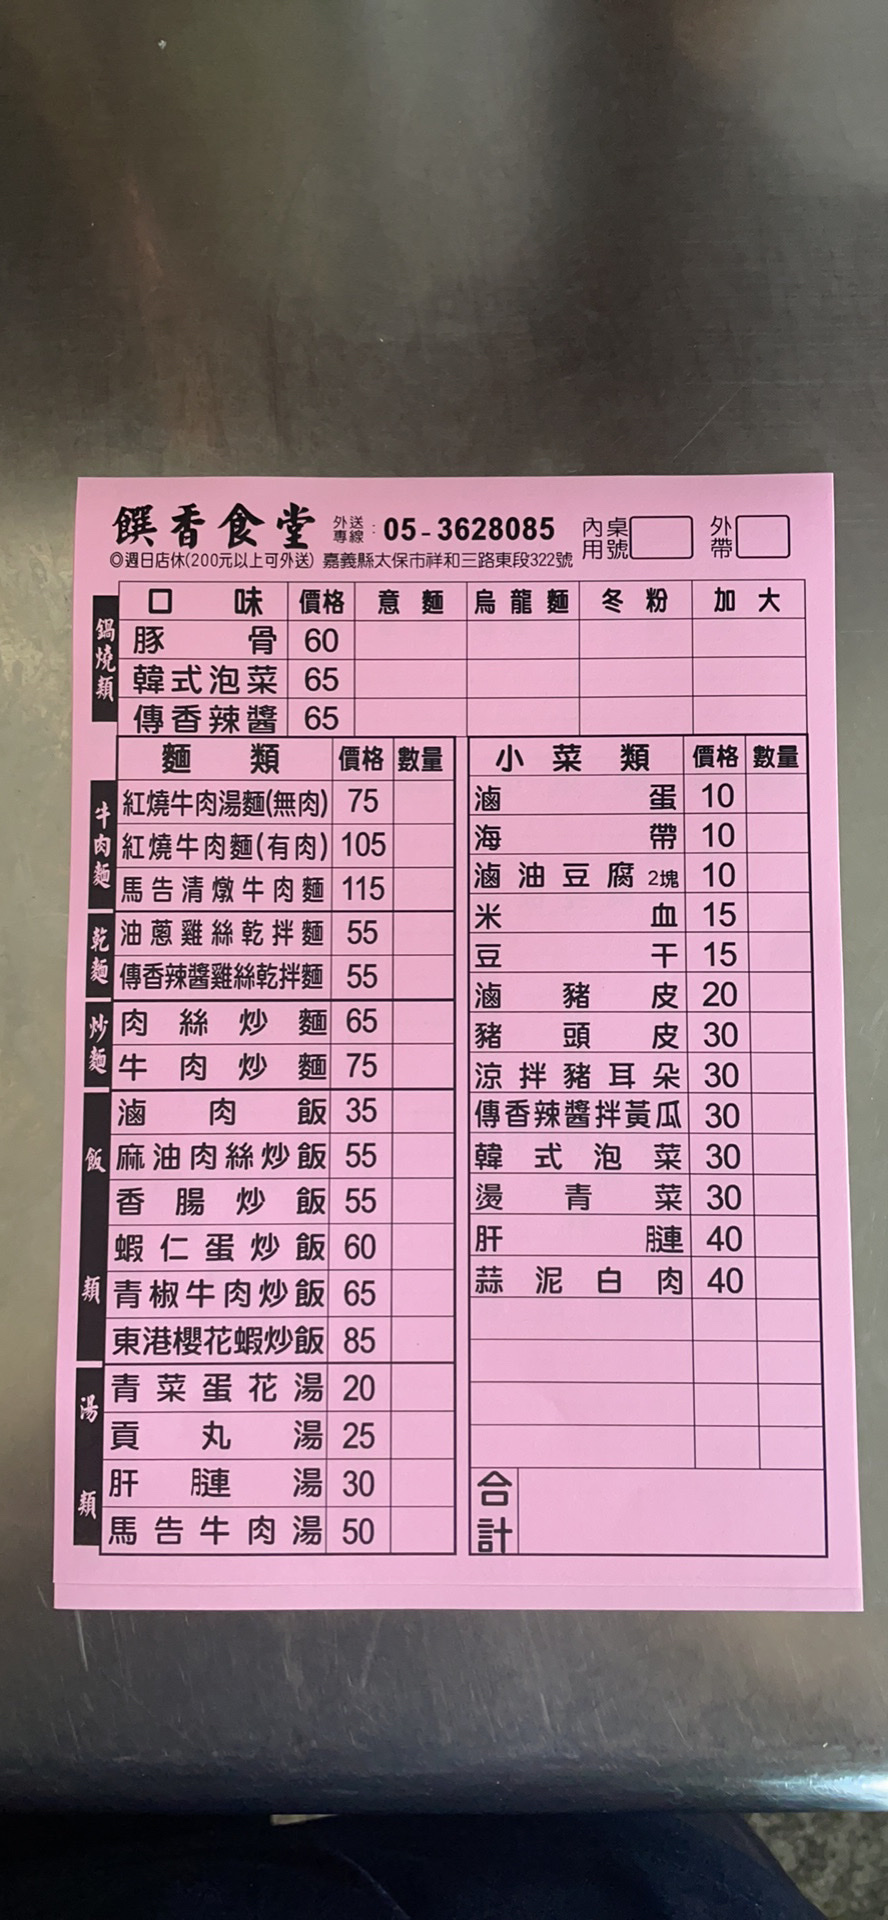 饌香食堂 外送專線：05-3628085 內用桌號 外帶
◎週日店休(200元以上可外送) 嘉義縣太保市祥和三路東段322號
鍋燒類
口味 價格 意麵 烏龍麵 冬粉 加大
豚骨 60
韓式泡菜 65
傳香辣醬 65
麵類 價格 數量
牛肉麵
紅燒牛肉湯麵(無肉) 75
紅燒牛肉麵(有肉) 105
馬告清燉牛肉麵 115
乾麵
油蔥雞絲乾拌麵 55
傳香辣醬雞絲乾拌麵 55
炒麵
肉絲炒麵 65
牛肉炒麵 75
飯類
滷肉飯 35
麻油肉絲炒飯 55
香腸炒飯 55
蝦仁蛋炒飯 60
青椒牛肉炒飯 65
東港櫻花蝦炒飯 85
湯類
青菜蛋花湯 20
貢丸湯 25
肝膁湯 30
馬告牛肉湯 50
小菜類 價格 數量
滷蛋 10
海帶 10
滷油豆腐 2塊 10
米血 15
豆干 15
滷豬皮 20
豬頭皮 30
涼拌豬耳朵 30
傳香辣醬拌黃瓜 30
韓式泡菜 30
燙青菜 30
肝膁 40
蒜泥白肉 40
合計